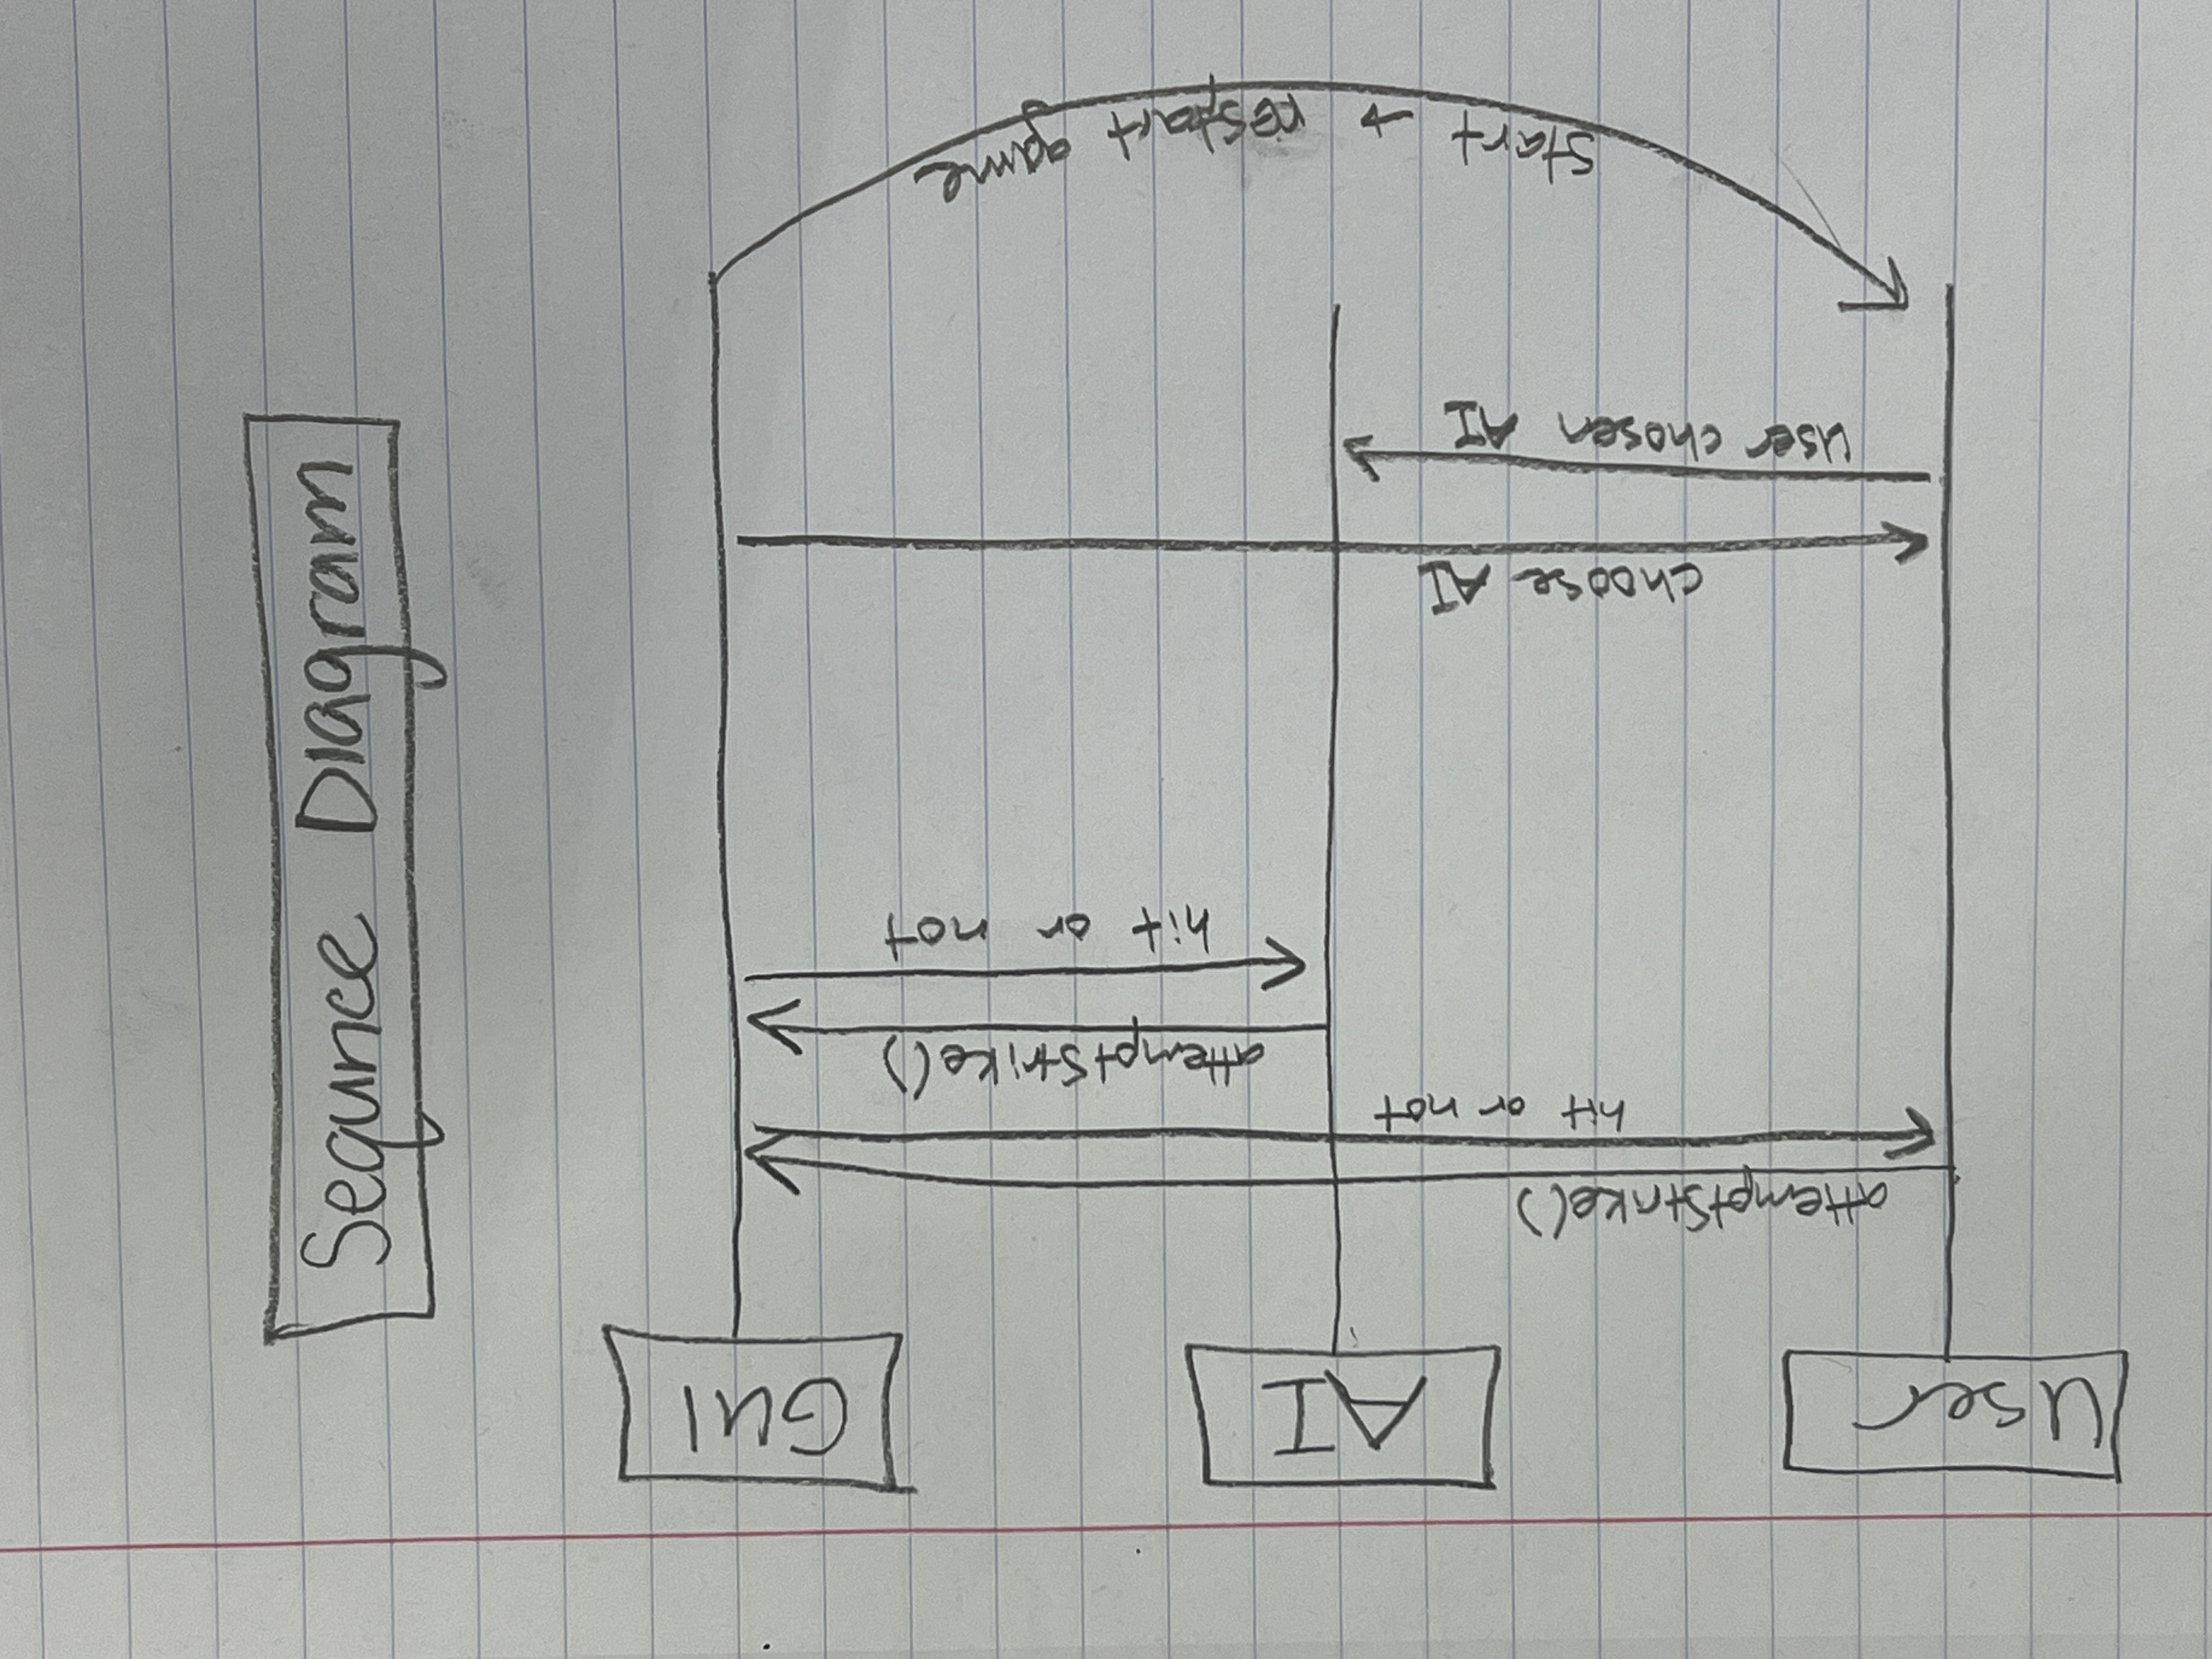 Sequnce Diagram
User
AI
GUI
attemptStrike()
hit or not
attemptStrike()
hit or not
choose AI
user chosen AI
Start + restart game